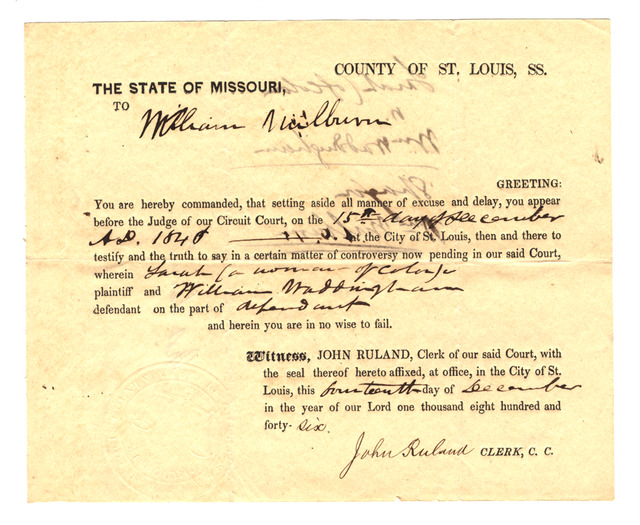 COUNTY OF ST. LOUIS, SS.
THE STATE OF MISSOURI,
TO
William Milburn
GREETING:
You are hereby commanded, that setting aside all manner of excuse and delay, you appear
before the Judge of our Circuit Court, on the 15th day of December
A.D. 1846 at the City of St. Louis, then and there to
testify and the truth to say in a certain matter of controversy now pending in our said Court,
wherein Sarah (a woman of color)
plaintiff and William Waddingham
defendant on the part of defendant
and herein you are in no wise to fail.
Witness, JOHN RULAND, Clerk of our said Court, with
the seal thereof hereto affixed, at office, in the City of St.
Louis, this fourteenth day of December
in the year of our Lord one thousand eight hundred and
forty- six.
John Ruland CLERK, C. C.